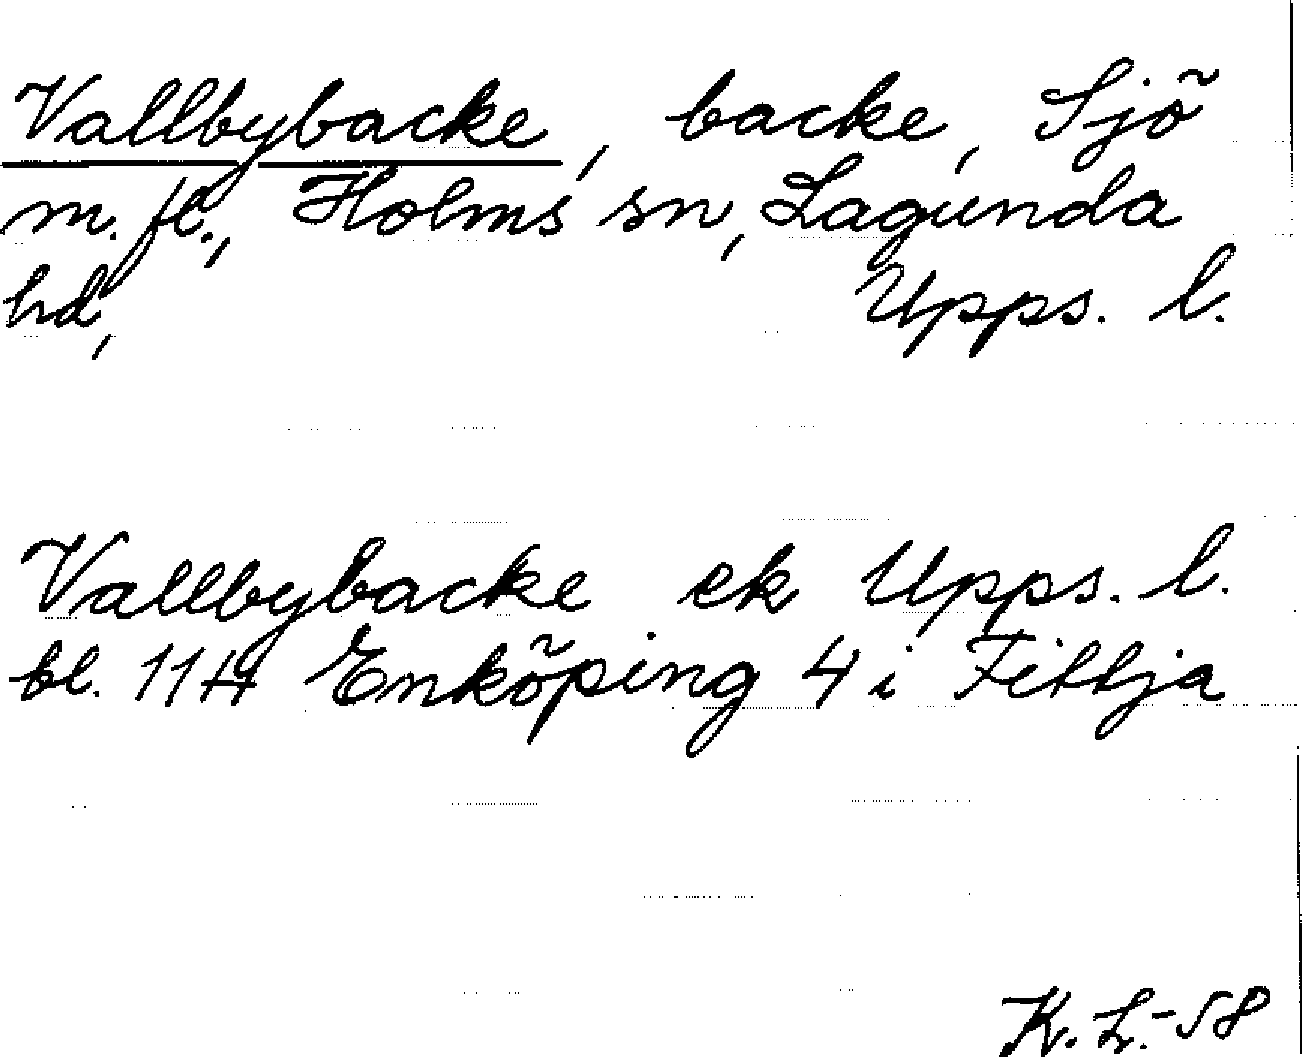 Vallbybacke, backe, Sjö
m.fl., Holms sn, Lagunda
hd, Upps. l.
Vallbybacke ek Upps. l.
bl. 11H Enköping 4 i Fittja
K. L. -58